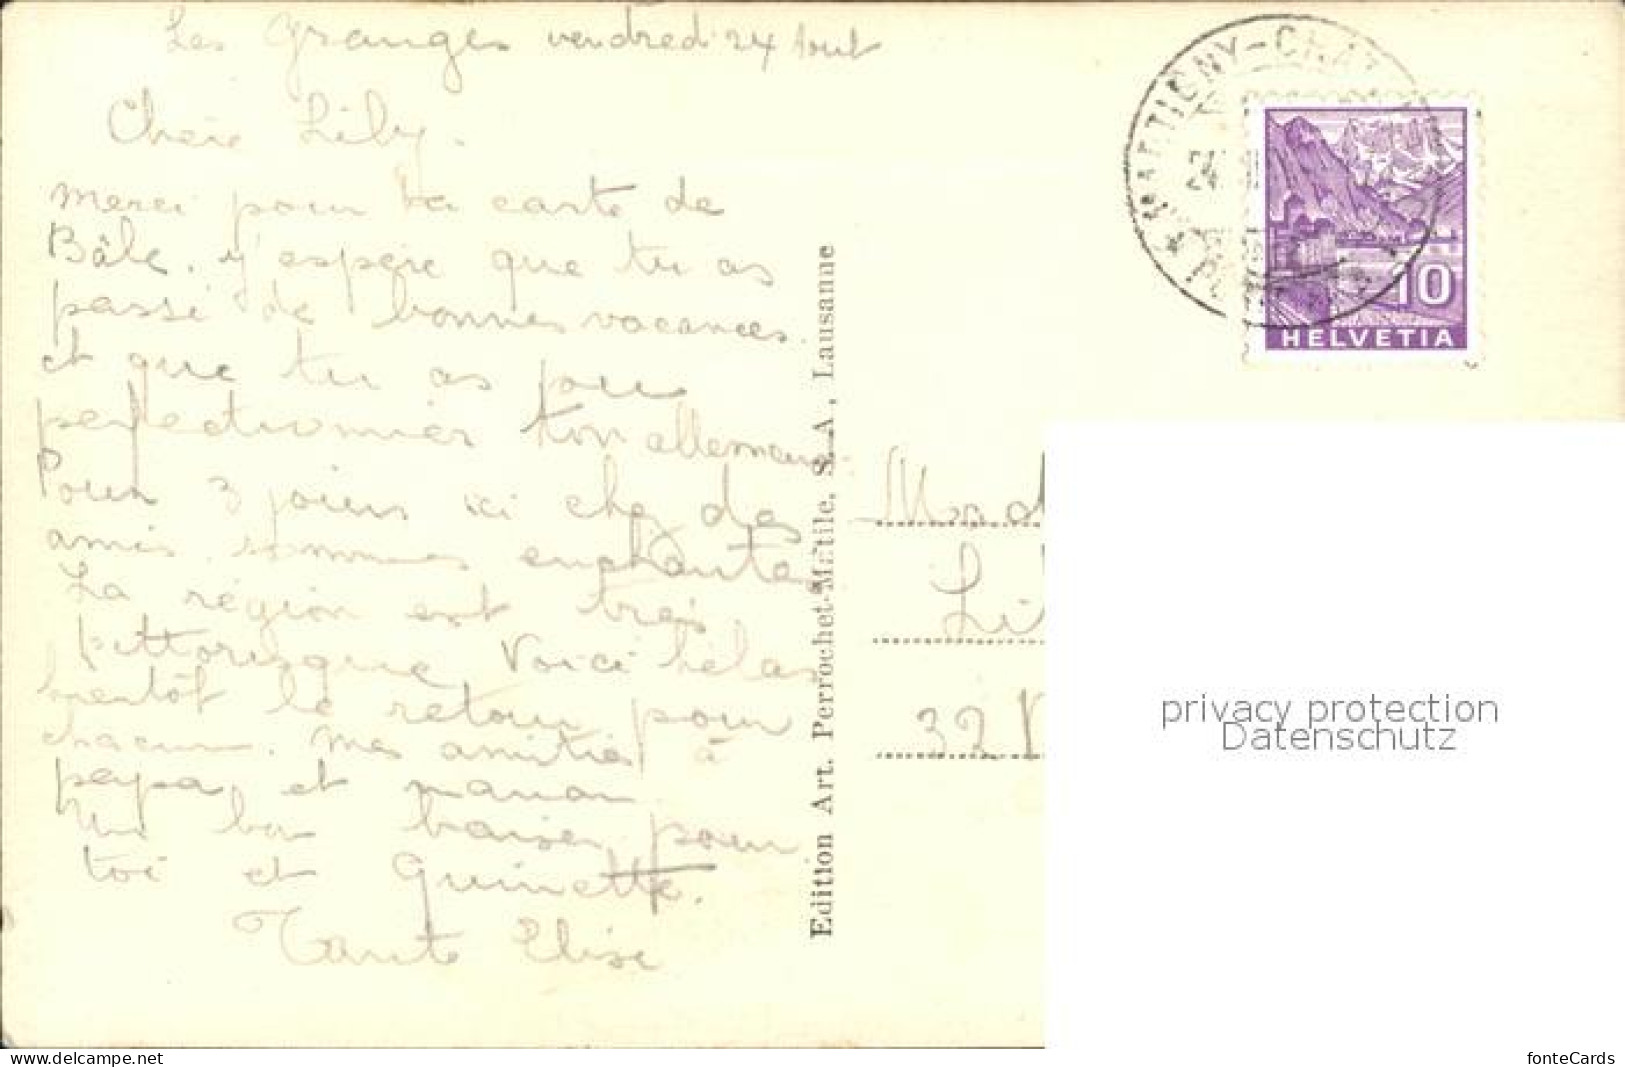 Les Granges vendredi 24 Aout
Chère Liby.
Merci pour ta carte de
Bâle. j'espère que tu as
passé de bonnes vacances
et que tu as pu
perfectionner ton allemand
Pour 3 jours ici chez des
amis sommes enchantés
La région est très
pittoresque Voici hélas
bientôt le retour pour
chacun. Mes amitiés à
papa et maman
Un bon baiser pour
toi et Guinette.
Tante Elise
Edition Art. Perrochet-Matile, S. A., Lausanne
MARTIGNY-CHÂT
24
10
HELVETIA
Mad
Li
32
privacy protection
Datenschutz
www.delcampe.net
fonteCards